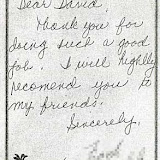 Dear David,
Thank you for
doing such a good
job. I will highly
recomend you to
my friends.
Sincerely,